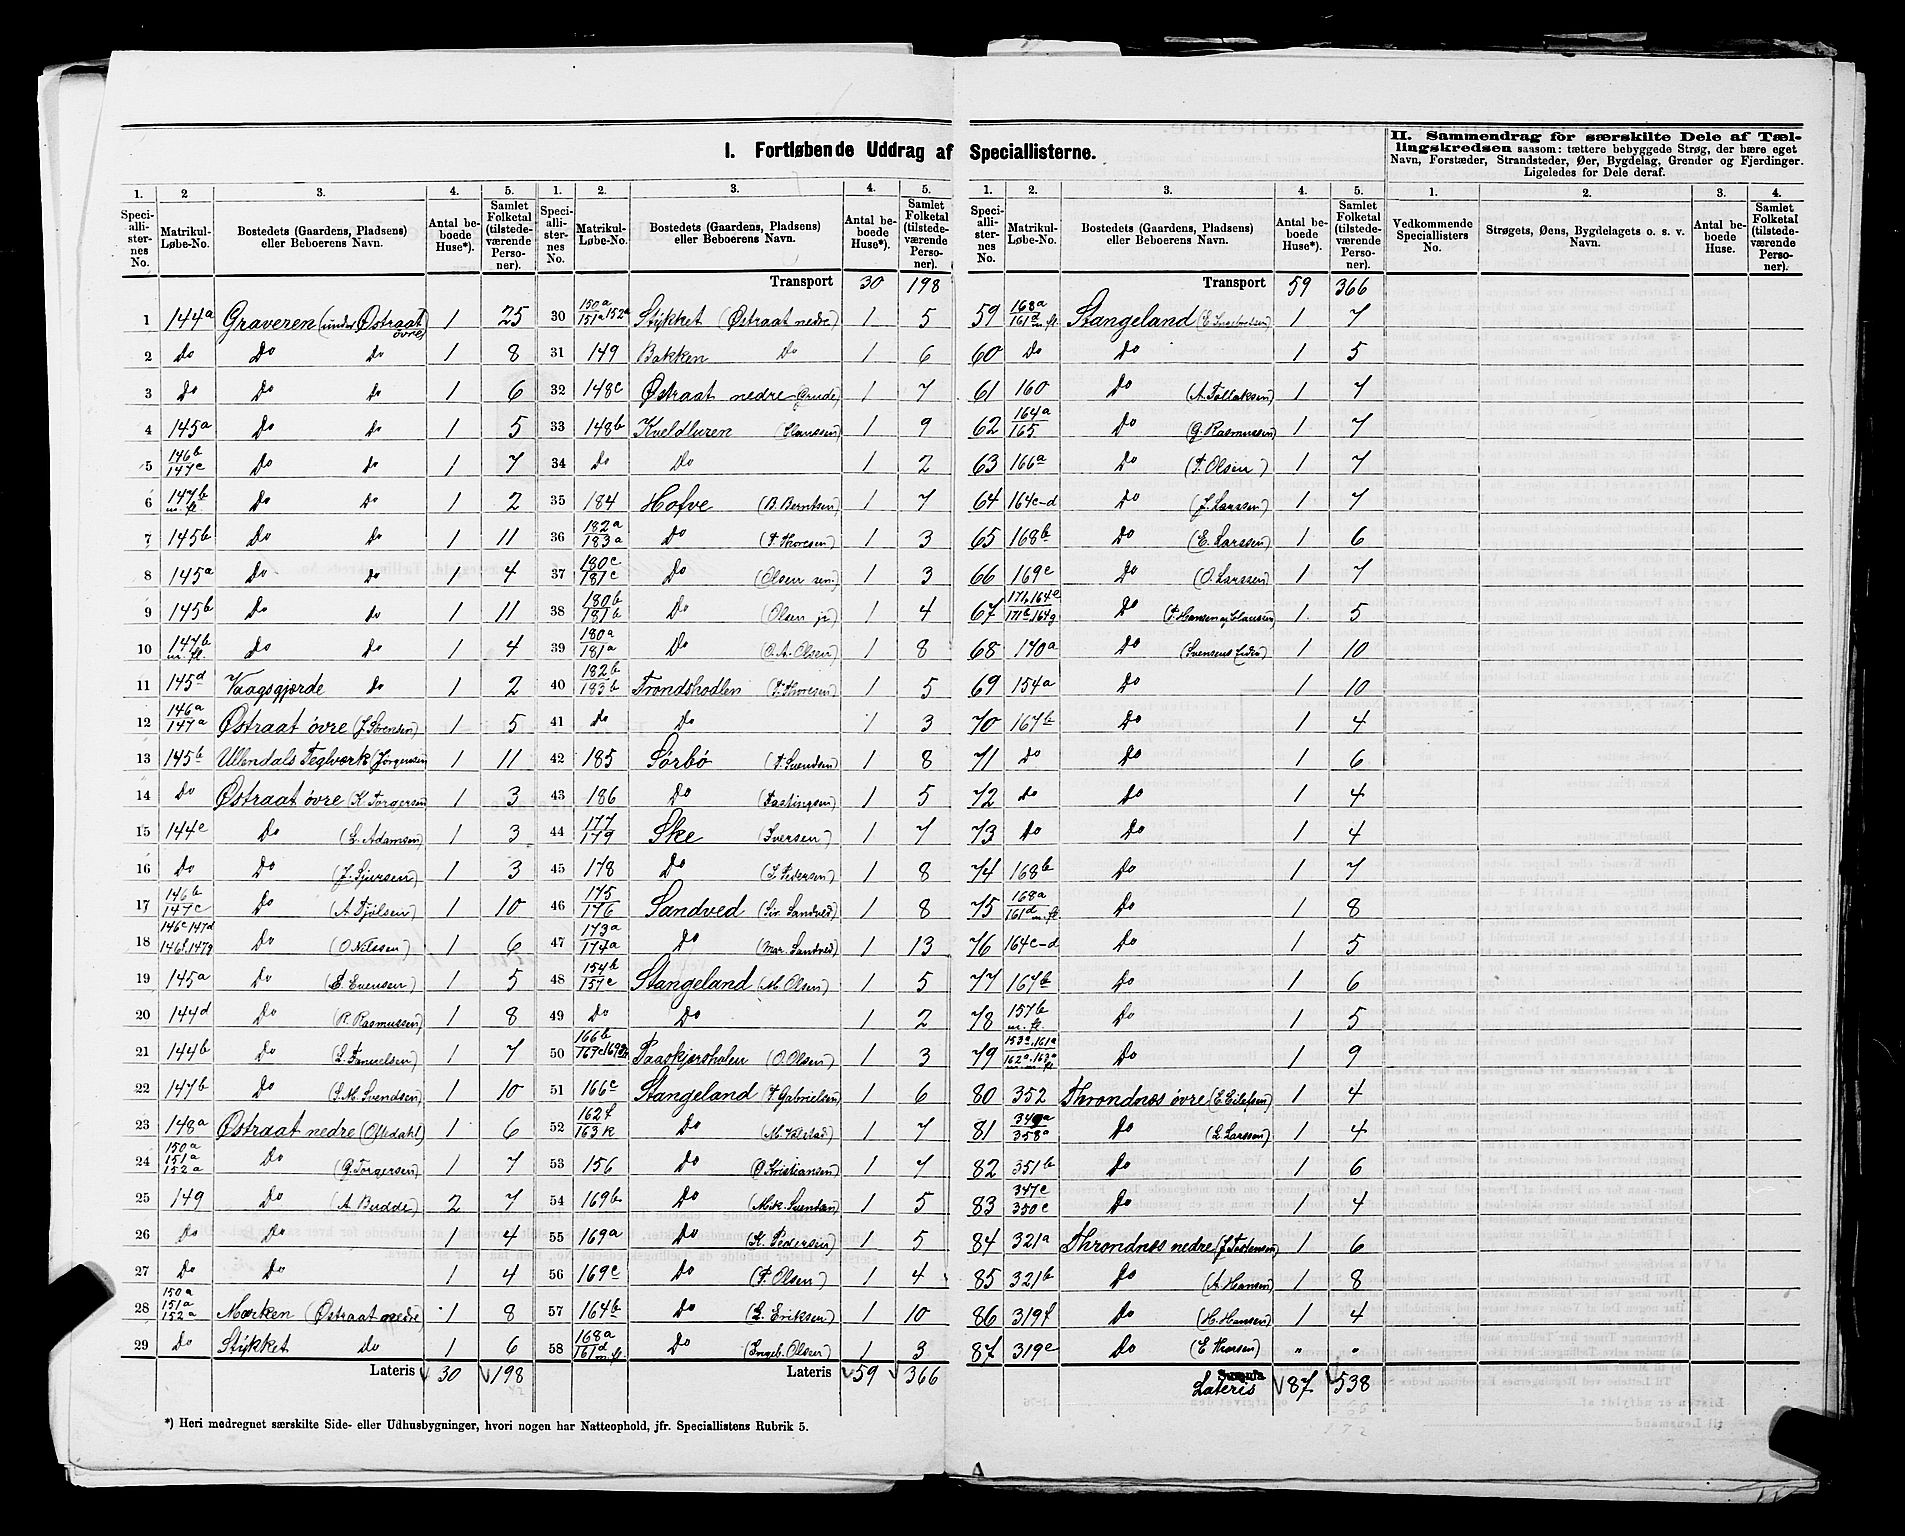 I. Fortløbende Uddrag af Speciallisterne.
II. Sammendrag for særskilte Dele af Tællingskredsen saasom: tættere bebyggede Strøg, der bære eget
Navn, Forstæder, Strandsteder, Øer, Bygdelag, Grender og Fjerdinger.
Ligeledes for Dele deraf.
1. 2 3. 4. 5. 1. 2. 3. 4. 5. 1. 2. 3. 4. 5. 1. 2. 3. 4.
Speciallisternes No. Matrikul-Løbe-No. Bostedets (Gaardens, Pladsens) eller Beboerens Navn. Antal beboede Huse*). Samlet Folketal (tilstedeværende Personer).
Speciallisternes No. Matrikul-Løbe-No. Bostedets (Gaardens, Pladsens) eller Beboerens Navn. Antal beboede Huse*). Samlet Folketal (tilstedeværende Personer).
Speciallisternes No. Matrikul-Løbe-No. Bostedets (Gaardens, Pladsens) eller Beboerens Navn. Antal beboede Huse*). Samlet Folketal (tilstedeværende Personer).
Vedkommende Speciallisters No. Strøgets, Øens, Bygdelagets o. s. v. Navn. Antal beboede Huse. Samlet Folketal (tilstedeværende Personer).
1 144a Graveren (under Østraat øvre) 1 25
2 Do Do Do 1 8
3 Do Do Do 1 6
4 145a Do Do 1 5
5 146b 147c Do Do 1 7
6 147b m. fl. Do Do 1 2
7 145b Do Do 1 11
8 145a Do Do 1 4
9 145b Do Do 1 11
10 147b m. fl. Do Do 1 4
11 145d Vaagsgjerde Do 1 2
12 146a 147a Østraat øvre (J. Sørensen) 1 5
13 145b Ullendals Teglværk (Jørgensen) 1 11
14 Do Østraat øvre (K. Torgersen) 1 3
15 144e Do (L. Adamsen) 1 3
16 Do Do (J. Sjursen) 1 3
17 146b 147c Do (A. Fjølsen) 1 10
18 146c 147d 146f 147g Do (O Nilssen) 1 6
19 145a Do (Evensen) 1 5
20 144d Do (R. Rasmussen) 1 8
21 144b Do 1 7
22 147b Do (Svendsen) 1 10
23 148a Østraat nedre (Oftedahl) 1 6
24 150a 151a 152a Do (G. Torgersen) 1 7
25 149 Do (A. Budde) 2 7
26 Do Do 1 4
27 Do Do 1 4
28 150a 151a 152a Marken (Østraat nedre) 1 8
29 Do Stykket Do 1 6
Lateris 30 198
Transport 30 198
30 150a 151a 152a Stykket (Østraat nedre) 1 5
31 149 Bakken Do 1 6
32 148c Østraat nedre (Grude) 1 7
33 148b Kveldluren (Claussen) 1 9
34 Do Do 1 2
35 184 Hofve (B. Berntsen) 1 7
36 182a 183a Do (T. Thoresen) 1 3
37 180c 181c Do (Olsen sen.) 1 3
38 180b 181b Do (Olsen jr) 1 4
39 180a 181a Do (O. A. Olsen) 1 8
40 182b 183b Trondshodlen (T. Thoresen) 1 5
41 Do Do 1 3
42 185 Sørbø (T. Svendsen) 1 8
43 186 Do (Fastingsen) 1 5
44 177 179 Ske (Iversen) 1 7
45 178 Do (Pedersen) 1 8
46 175 176 Sandved (Sir. Sandved) 1 8
47 173a 174a Do (Mar. Sandved) 1 13
48 154b 157c Stangeland (M. Olsen) 1 5
49 Do Do 1 2
50 166b Paaskjærsholen (O. Olsen) 1 3
51 166c Stangeland (T Gabrielsen) 1 6
52 162f 163k Do 1 7
53 156 Do (O. Kristiansen) 1 7
54 169b Do 1 5
55 169a Do (K. Pedersen) 1 5
56 169c Do (P. Olsen) 1 4
57 164b Do (L. Eriksen) 1 10
58 168a 161d m. fl. Do (Ingeb. Olsen) 1 3
Lateris 59 366
Transport 59 366
59 168a 161d m. fl. Stangeland 1 7
60 Do Do 1 5
61 160 Do (A. Tollaksen) 1 7
62 164a 165 Do (G. Rasmussen) 1 7
63 166a Do (T. Olsen) 1 7
64 164c-d Do (J. Larssen) 1 7
65 168b Do (E. Larssen) 1 6
66 169c Do (O. Larssen) 1 7
67 171b 164g Do (T. Hansen og Clausen) 1 5
68 170a Do 1 10
69 154a Do 1 10
70 167b Do 1 4
71 Do Do 1 6
72 Do Do 1 4
73 Do Do 1 4
74 168b Do 1 7
75 168a 161d m. fl. Do 1 8
76 164c-d Do 1 5
77 167b Do 1 6
78 157b m. fl. Do 1 5
79 153a 161a 162a 163a m. m. fl. Do 1 9
80 352 Throndnes øvre (E. Eilefsen) 1 4
81 358a Do (L. Larssen) 1 4
82 351b Do 1 6
83 347c 350c Do 1 4
84 321a Throndnes nedre (J. Torstensen) 1 6
85 321b Do (A. Hansen) 1 8
86 319f Do (H. Hansen) 1 4
87 319e Do (E. Thorsen) " "
Summa
Lateris 87 538
*) Heri medregnet særskilte Side- eller Udhusbygninger, hvori nogen har Natteophold, jfr. Speciallistens Rubrik 5.